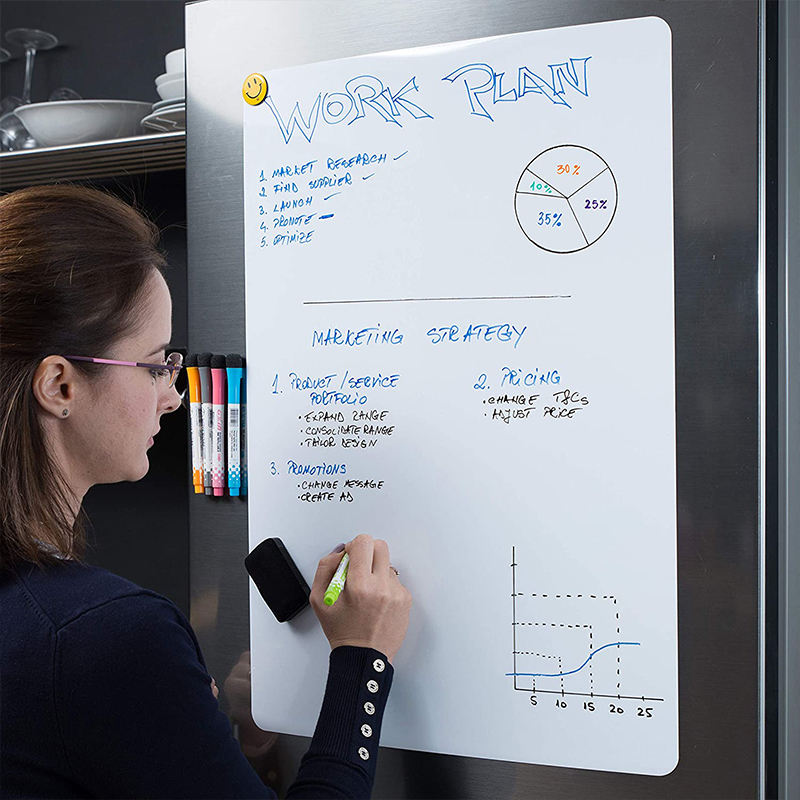 WORK PLAN
1. MARKET RESEARCH ✓
2. FIND SUPPLIER ✓
3. LAUNCH ✓
4. PROMOTE –
5. OPTIMIZE
30%
10%
25%
35%
MARKETING STRATEGY
1. PRODUCT / SERVICE
PORTFOLIO
• EXPAND RANGE
• CONSOLIDATE RANGE
• TAILOR DESIGN
2. PRICING
• CHANGE T&Cs
• ADJUST PRICE
3. PROMOTIONS
• CHANGE MESSAGE
• CREATE AD
5 10 15 20 25